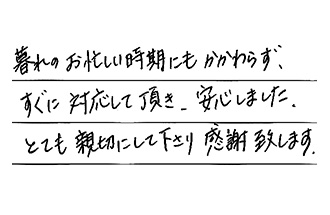 暮れのお忙しい時期にもかかわらず、
すぐに対応して頂き、安心しました。
とても親切にして下さり感謝致します。